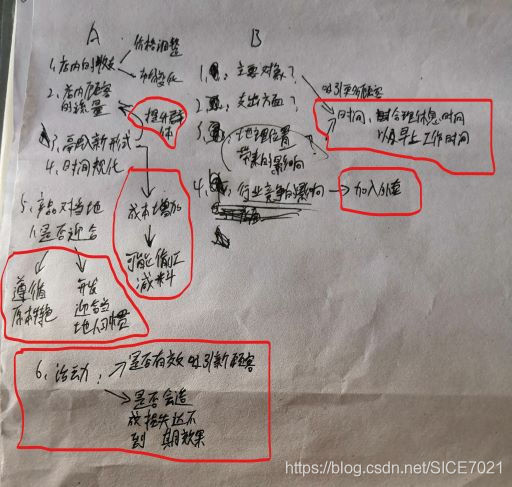 A
价格调整
1、店内的
2、店内顾客
的流量
提升群
体
3、高 新形式
4、时间规化
5、产品对当地
人是否迎合
遵循
原本特色
开发
迎合当
地人习惯
成本增加
可能偷工
减料
6、活动:
是否有效吸引新顾客
是否会造
成损失达不
到 期效果
B
1、主要对象?
吸引更多顾客
2、支出方面?
时间,契合现休息时间
以及早上工作时间
3、地理位置
带来的影响
4、行业竞争的影响
加入外卖
https://blog.csdn.net/SICE7021